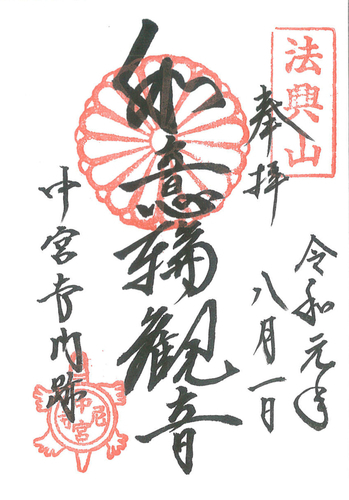 法興山
奉拝
令和元年
八月一日
如意輪観音
中宮寺門跡